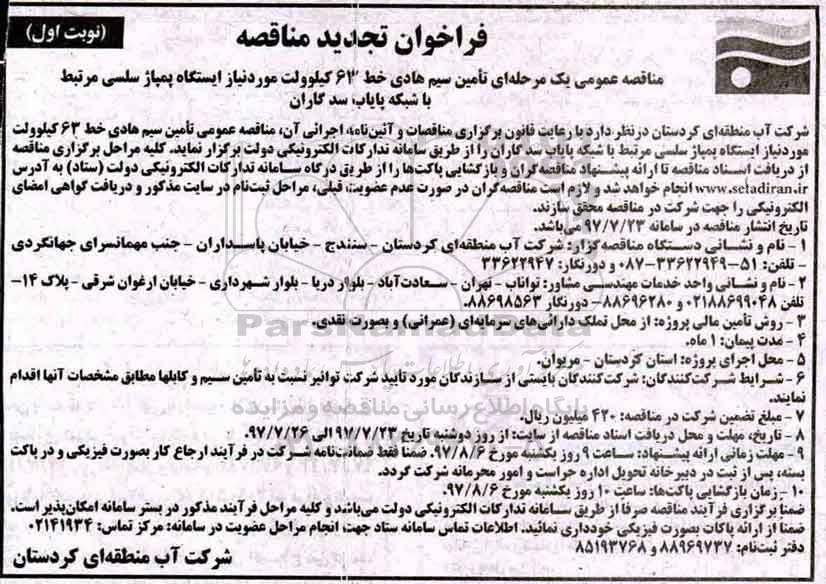 (نوبت اول)
فراخوان تجدید مناقصه
مناقصه عمومی یک مرحله‌ای تأمین سیم هادی خط ۶۳ کیلوولت موردنیاز ایستگاه پمپاژ سلسی مرتبط
با شبکه پایاب سد گاران
شرکت آب منطقه‌ای کردستان درنظر دارد با رعایت قانون برگزاری مناقصات و آئین‌نامه اجرائی آن، مناقصه عمومی تأمین سیم هادی خط ۶۳ کیلوولت
موردنیاز ایستگاه پمپاژ سلسی مرتبط با شبکه پایاب سد گاران را از طریق سامانه تدارکات الکترونیکی دولت برگزار نماید. کلیه مراحل برگزاری مناقصه
از دریافت اسناد مناقصه تا ارائه پیشنهاد مناقصه‌گران و بازگشایی پاکت‌ها را از طریق درگاه سامانه تدارکات الکترونیکی دولت (ستاد) به آدرس
www.setadiran.ir انجام خواهد شد و لازم است مناقصه‌گران در صورت عدم عضویت قبلی، مراحل ثبت‌نام در سایت مذکور و دریافت گواهی امضای
الکترونیکی را جهت شرکت در مناقصه محقق سازند.
تاریخ انتشار مناقصه در سامانه ۹۷/۷/۲۳ می‌باشد.
۱ - نام و نشانی دستگاه مناقصه‌گزار: شرکت آب منطقه‌ای کردستان - سنندج - خیابان پاسداران - جنب مهمانسرای جهانگردی
- تلفن: ۵۱-۳۳۶۲۲۹۴۹-۰۸۷ و دورنگار: ۳۳۶۲۲۹۴۷
۲ - نام و نشانی واحد خدمات مهندسی مشاور: تواناب - تهران - سعادت‌آباد - بلوار دریا - بلوار شهرداری - خیابان ارغوان شرقی - پلاک ۱۴-
تلفن ۰۲۱۸۸۶۹۹۰۴۸ و ۸۸۶۹۶۲۸۰ - دورنگار ۸۸۶۹۸۵۶۳.
۳ - روش تأمین مالی پروژه: از محل تملک دارائی‌های سرمایه‌ای (عمرانی) و بصورت نقدی.
۴ - مدت پیمان: ۱ ماه.
۵ - محل اجرای پروژه: استان کردستان - مریوان.
۶ - شرایط شرکت‌کنندگان: شرکت‌کنندگان بایستی از سازندگان مورد تایید شرکت توانیر نسبت به تأمین سیم و کابلها مطابق مشخصات آنها اقدام
نمایند.
۷ - مبلغ تضمین شرکت در مناقصه: ۴۲۰ میلیون ریال.
۸ - تاریخ، مهلت و محل دریافت اسناد مناقصه از سایت: از روز دوشنبه تاریخ ۹۷/۷/۲۳ الی ۹۷/۷/۲۶.
۹ - مهلت زمانی ارائه پیشنهاد: ساعت ۹ روز یکشنبه مورخ ۹۷/۸/۶. ضمنا فقط ضمانت‌نامه شرکت در فرآیند ارجاع کار بصورت فیزیکی و در پاکت
بسته، پس از ثبت در دبیرخانه تحویل اداره حراست و امور محرمانه شرکت گردد.
۱۰ - زمان بازگشایی پاکت‌ها: ساعت ۱۰ روز یکشنبه مورخ ۹۷/۸/۶.
ضمنا برگزاری فرآیند مناقصه صرفا از طریق سامانه تدارکات الکترونیکی دولت می‌باشد و کلیه مراحل فرآیند مذکور در بستر سامانه امکان‌پذیر است.
ضمنا از ارائه پاکات بصورت فیزیکی خودداری نمائید. اطلاعات تماس سامانه ستاد جهت انجام مراحل عضویت در سامانه: مرکز تماس: ۰۲۱۴۱۹۳۴
دفتر ثبت‌نام: ۸۸۹۶۹۷۳۷ و ۸۵۱۹۳۷۶۸
شرکت آب منطقه‌ای کردستان
ParsNamadData
پایگاه اطلاع رسانی مناقصه و مزایده